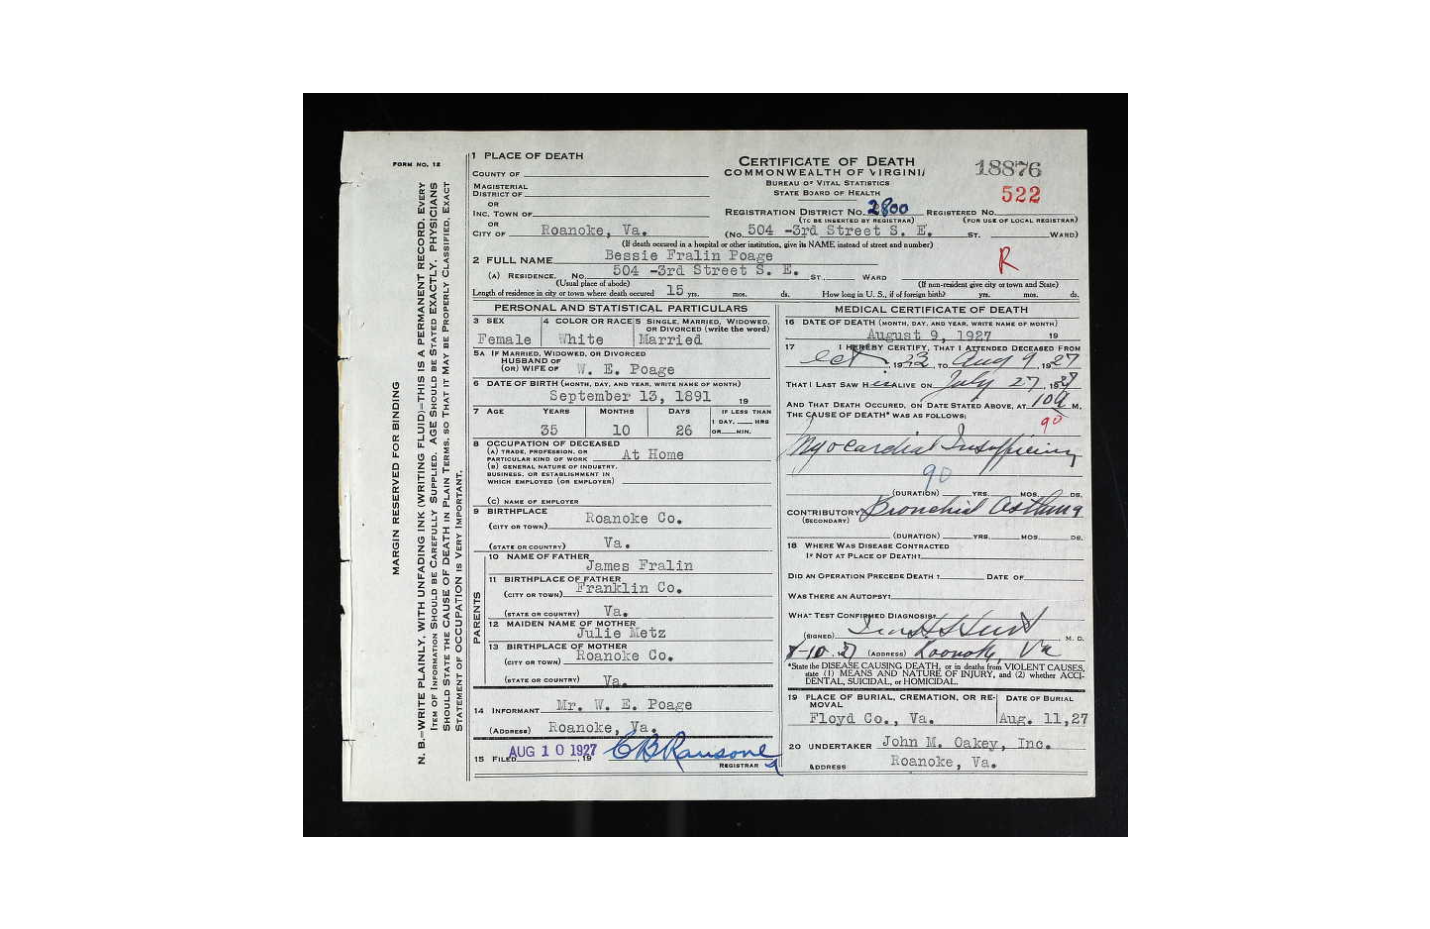 FORM NO. 12
MARGIN RESERVED FOR BINDING
N. B.—WRITE PLAINLY, WITH UNFADING INK (WRITING FLUID)—THIS IS A PERMANENT RECORD. EVERY
ITEM OF INFORMATION SHOULD BE CAREFULLY SUPPLIED. AGE SHOULD BE STATED EXACTLY. PHYSICIANS
SHOULD STATE THE CAUSE OF DEATH IN PLAIN TERMS, SO THAT IT MAY BE PROPERLY CLASSIFIED. EXACT
STATEMENT OF OCCUPATION IS VERY IMPORTANT.
1 PLACE OF DEATH
COUNTY OF
MAGISTERIAL
DISTRICT OF
OR
INC. TOWN OF
OR
CITY OF Roanoke, Va.
CERTIFICATE OF DEATH
COMMONWEALTH OF VIRGINIA
BUREAU OF VITAL STATISTICS
STATE BOARD OF HEALTH
18876
522
REGISTRATION DISTRICT NO. 2800 REGISTERED NO.
(TO BE INSERTED BY REGISTRAR) (FOR USE OF LOCAL REGISTRAR)
(NO. 504 -3rd Street S. E. ST. WARD)
(If death occured in a hospital or other institution, give its NAME instead of street and number)
2 FULL NAME Bessie Fralin Poage
R
(A) RESIDENCE. No. 504 -3rd Street S. E. ST., WARD
(Usual place of abode) (If non-resident give city or town and State)
Length of residence in city or town where death occured 15 yrs. mos. ds. How long in U. S., if of foreign birth? yrs. mos. ds.
PERSONAL AND STATISTICAL PARTICULARS
3 SEX
Female
4 COLOR OR RACE
White
5 SINGLE, MARRIED, WIDOWED,
OR DIVORCED (write the word)
Married
5A IF MARRIED, WIDOWED, OR DIVORCED
HUSBAND OF
(OR) WIFE OF W. E. Poage
6 DATE OF BIRTH (MONTH, DAY, AND YEAR, WRITE NAME OF MONTH)
September 13, 1891 19
7 AGE YEARS MONTHS DAYS IF LESS THAN
1 DAY, HRS
OR MIN.
35 10 26
8 OCCUPATION OF DECEASED
(A) TRADE, PROFESSION, OR
PARTICULAR KIND OF WORK At Home
(B) GENERAL NATURE OF INDUSTRY,
BUSINESS, OR ESTABLISHMENT IN
WHICH EMPLOYED (OR EMPLOYER)
(C) NAME OF EMPLOYER
9 BIRTHPLACE
(CITY OR TOWN) Roanoke Co.
(STATE OR COUNTRY) Va.
PARENTS
10 NAME OF FATHER
James Fralin
11 BIRTHPLACE OF FATHER
(CITY OR TOWN) Franklin Co.
(STATE OR COUNTRY) Va.
12 MAIDEN NAME OF MOTHER
Julie Metz
13 BIRTHPLACE OF MOTHER
(CITY OR TOWN) Roanoke Co.
(STATE OR COUNTRY) Va.
14 INFORMANT Mr. W. E. Poage
(ADDRESS) Roanoke, Va.
15 FILED AUG 10 1927, 19 C B Ransone
REGISTRAR
MEDICAL CERTIFICATE OF DEATH
16 DATE OF DEATH (MONTH, DAY, AND YEAR, WRITE NAME OF MONTH)
August 9, 1927 19
17 I HEREBY CERTIFY, THAT I ATTENDED DECEASED FROM
Oct, 1923 TO Aug 9, 1927
THAT I LAST SAW H ALIVE ON July 27, 1927
AND THAT DEATH OCCURED, ON DATE STATED ABOVE, AT 10 a M.
THE CAUSE OF DEATH* WAS AS FOLLOWS:
90
Myocardial Insufficiency
90
(DURATION) YRS. MOS. DS.
CONTRIBUTORY Bronchial Asthma
(SECONDARY)
(DURATION) YRS. MOS. DS.
18 WHERE WAS DISEASE CONTRACTED
IF NOT AT PLACE OF DEATH?
DID AN OPERATION PRECEDE DEATH? DATE OF
WAS THERE AN AUTOPSY?
WHAT TEST CONFIRMED DIAGNOSIS?
(SIGNED) M. D.
8-10-27 (ADDRESS) Roanoke, Va
*State the DISEASE CAUSING DEATH, or in deaths from VIOLENT CAUSES,
state (1) MEANS AND NATURE OF INJURY, and (2) whether ACCI-
DENTAL, SUICIDAL, or HOMICIDAL.
19 PLACE OF BURIAL, CREMATION, OR RE-
MOVAL
Floyd Co., Va.
DATE OF BURIAL
Aug. 11,27
20 UNDERTAKER John M. Oakey, Inc.
ADDRESS Roanoke, Va.